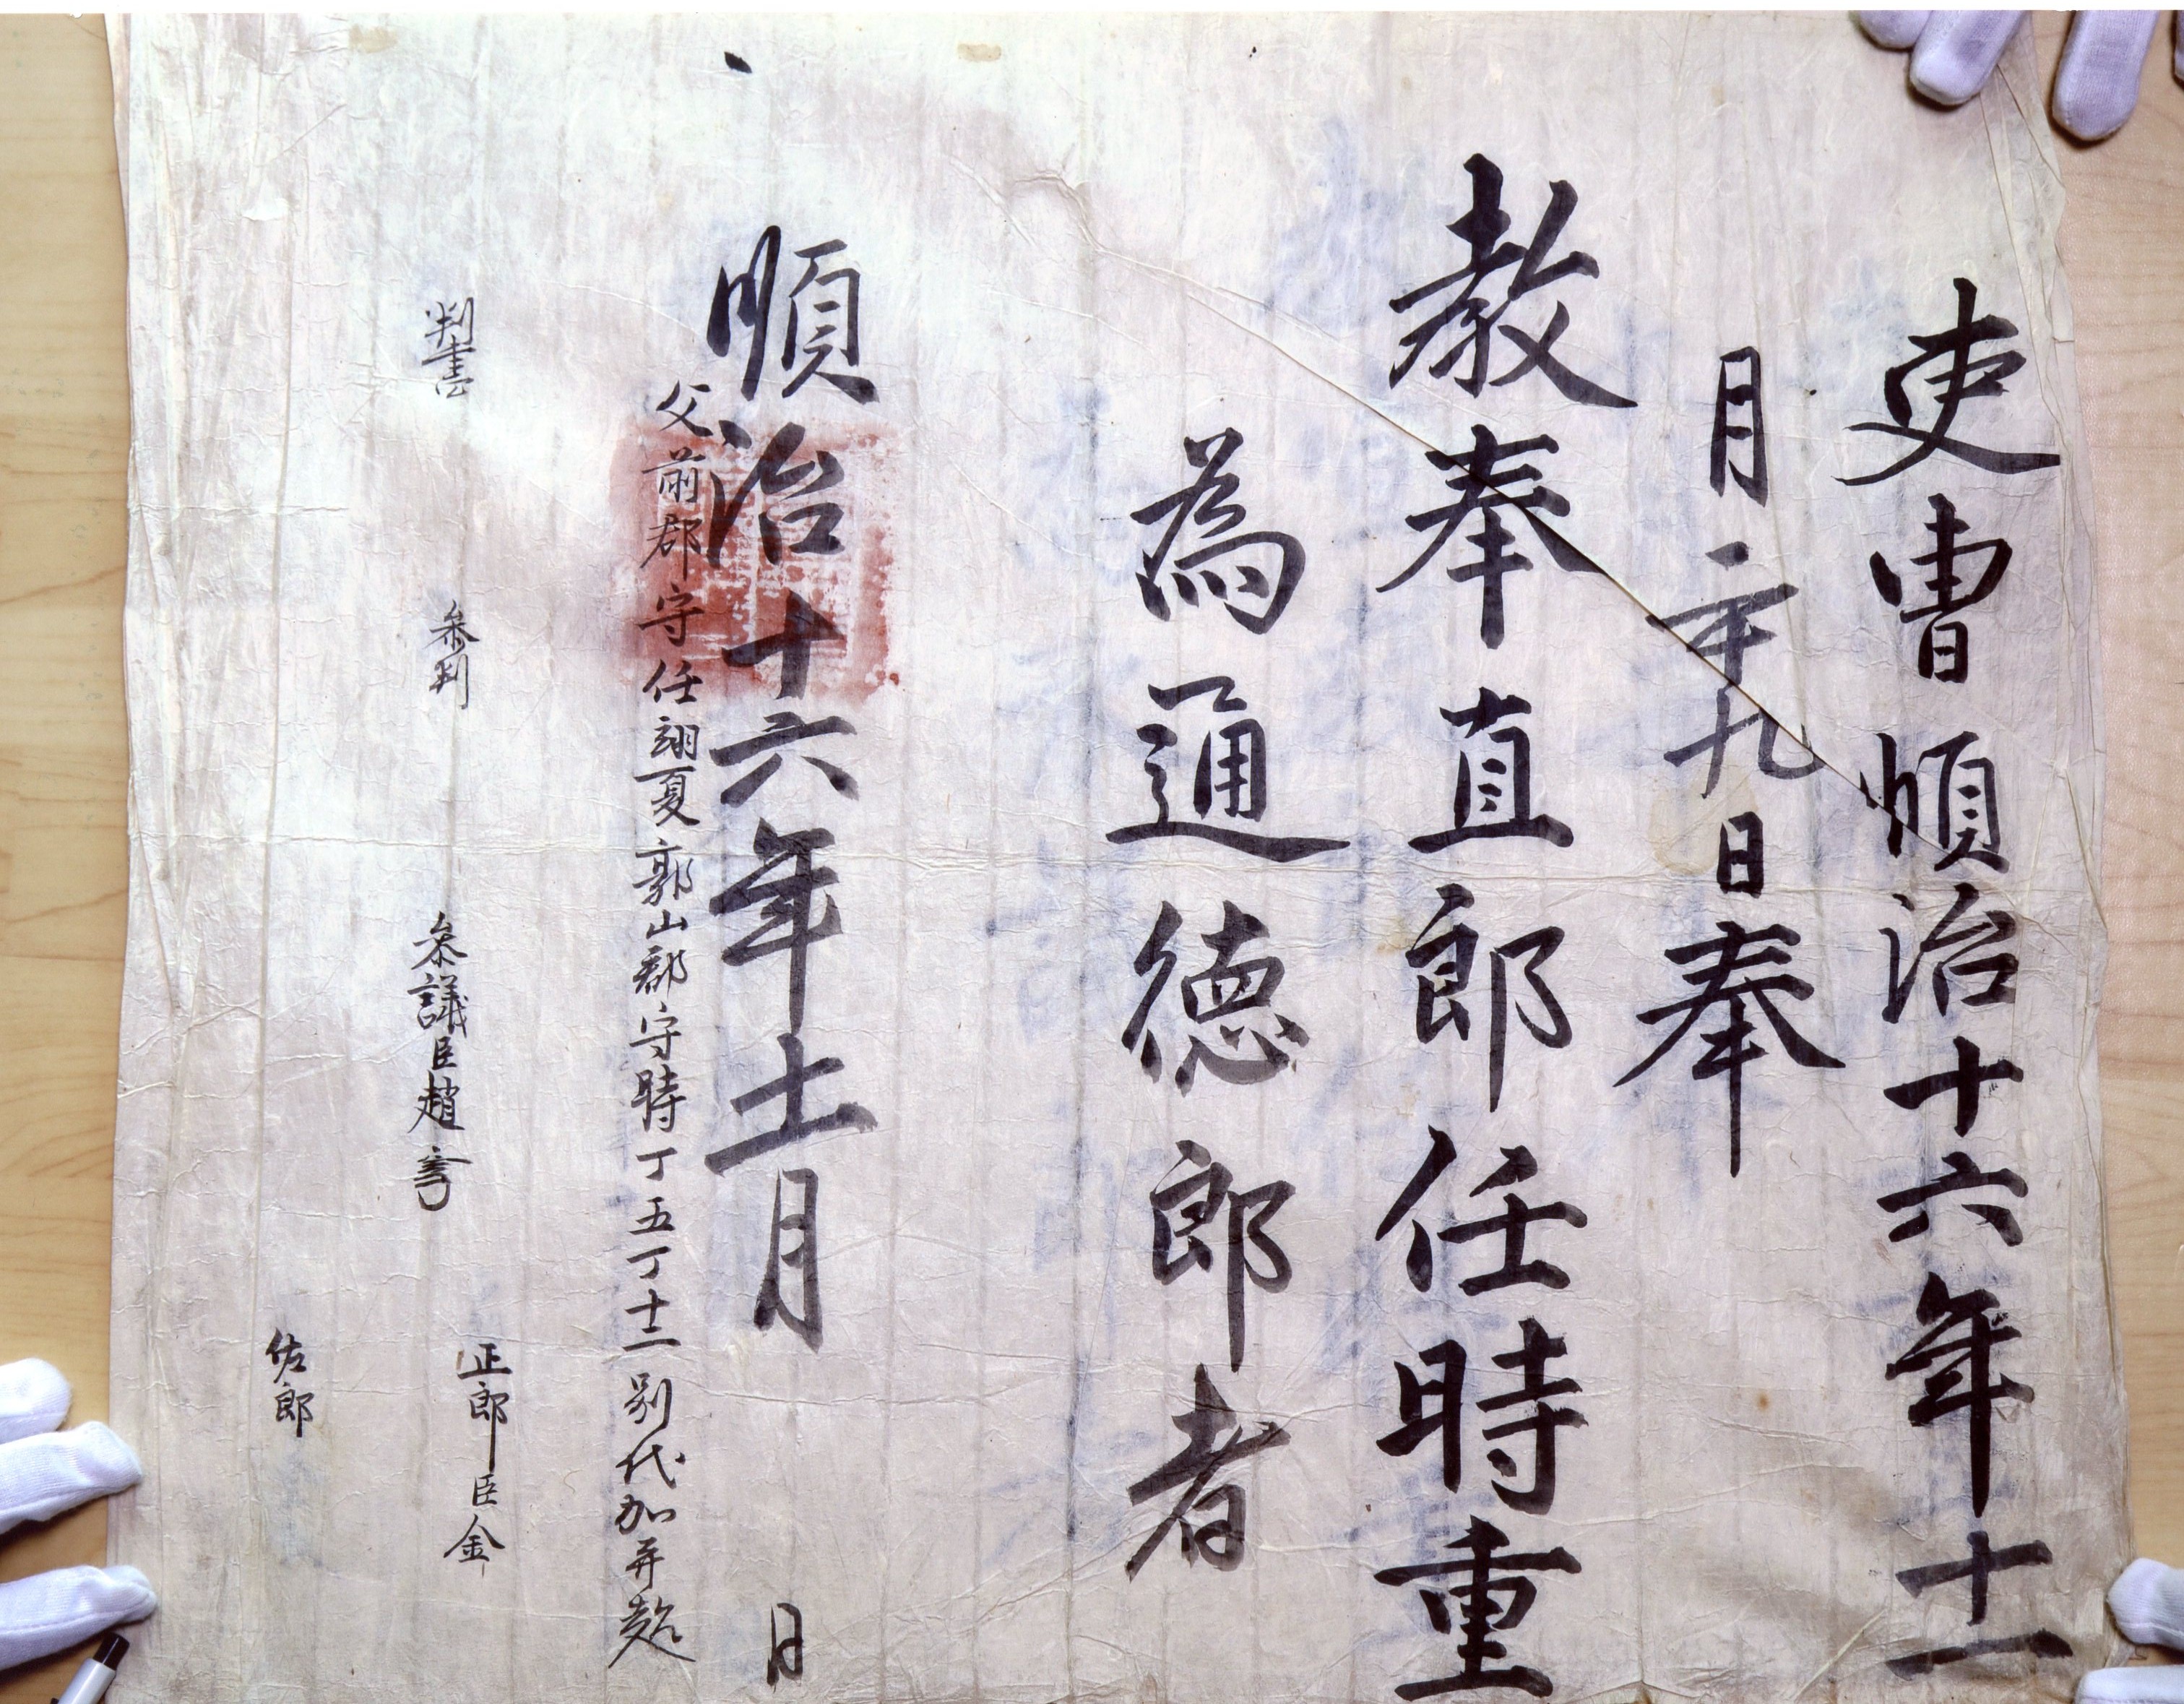 吏曹順治十六年十一
月二十九日奉
教奉直郎任時重
為通德郎者
順治十六年十一月 日
父前郡守任翊夏郭山郡守時丁五丁十二別代加弄
判書 參判 參議臣趙
正郎臣金
佐郎